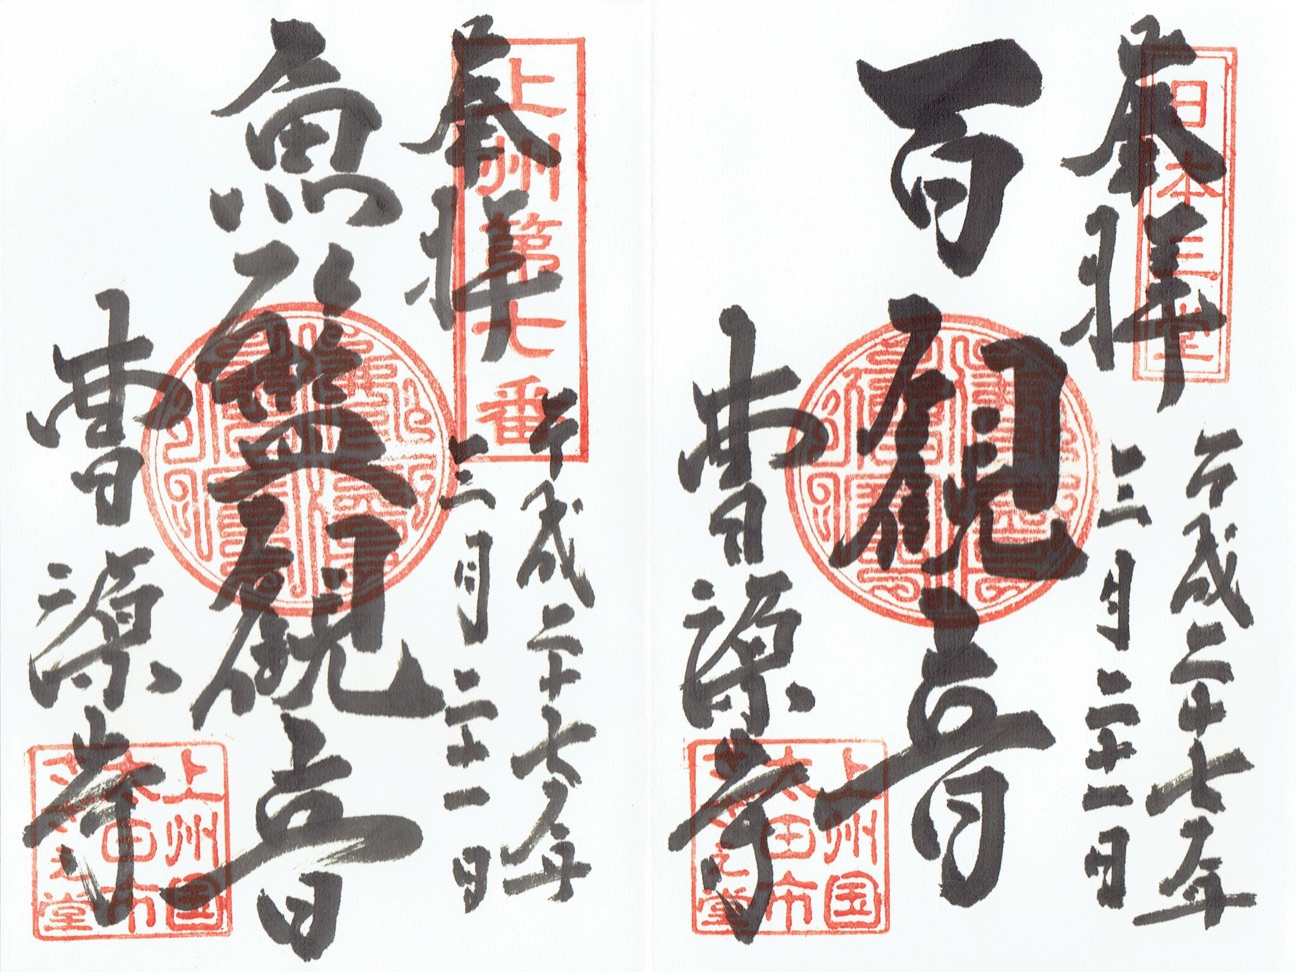 奉拝
日本三堂
平成二十七年
三月二十一日
百観音
曹源寺
上州国
太田市
さゞえ堂
奉拝
上州第七番
平成二十七年
三月二十一日
魚籃観音
曹源寺
上州国
太田市
さゞえ堂